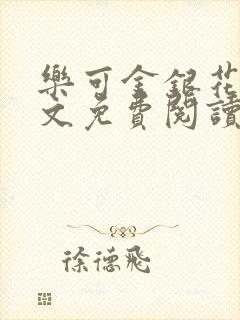 樂可金銀花
文免費閱讀
徐德飛